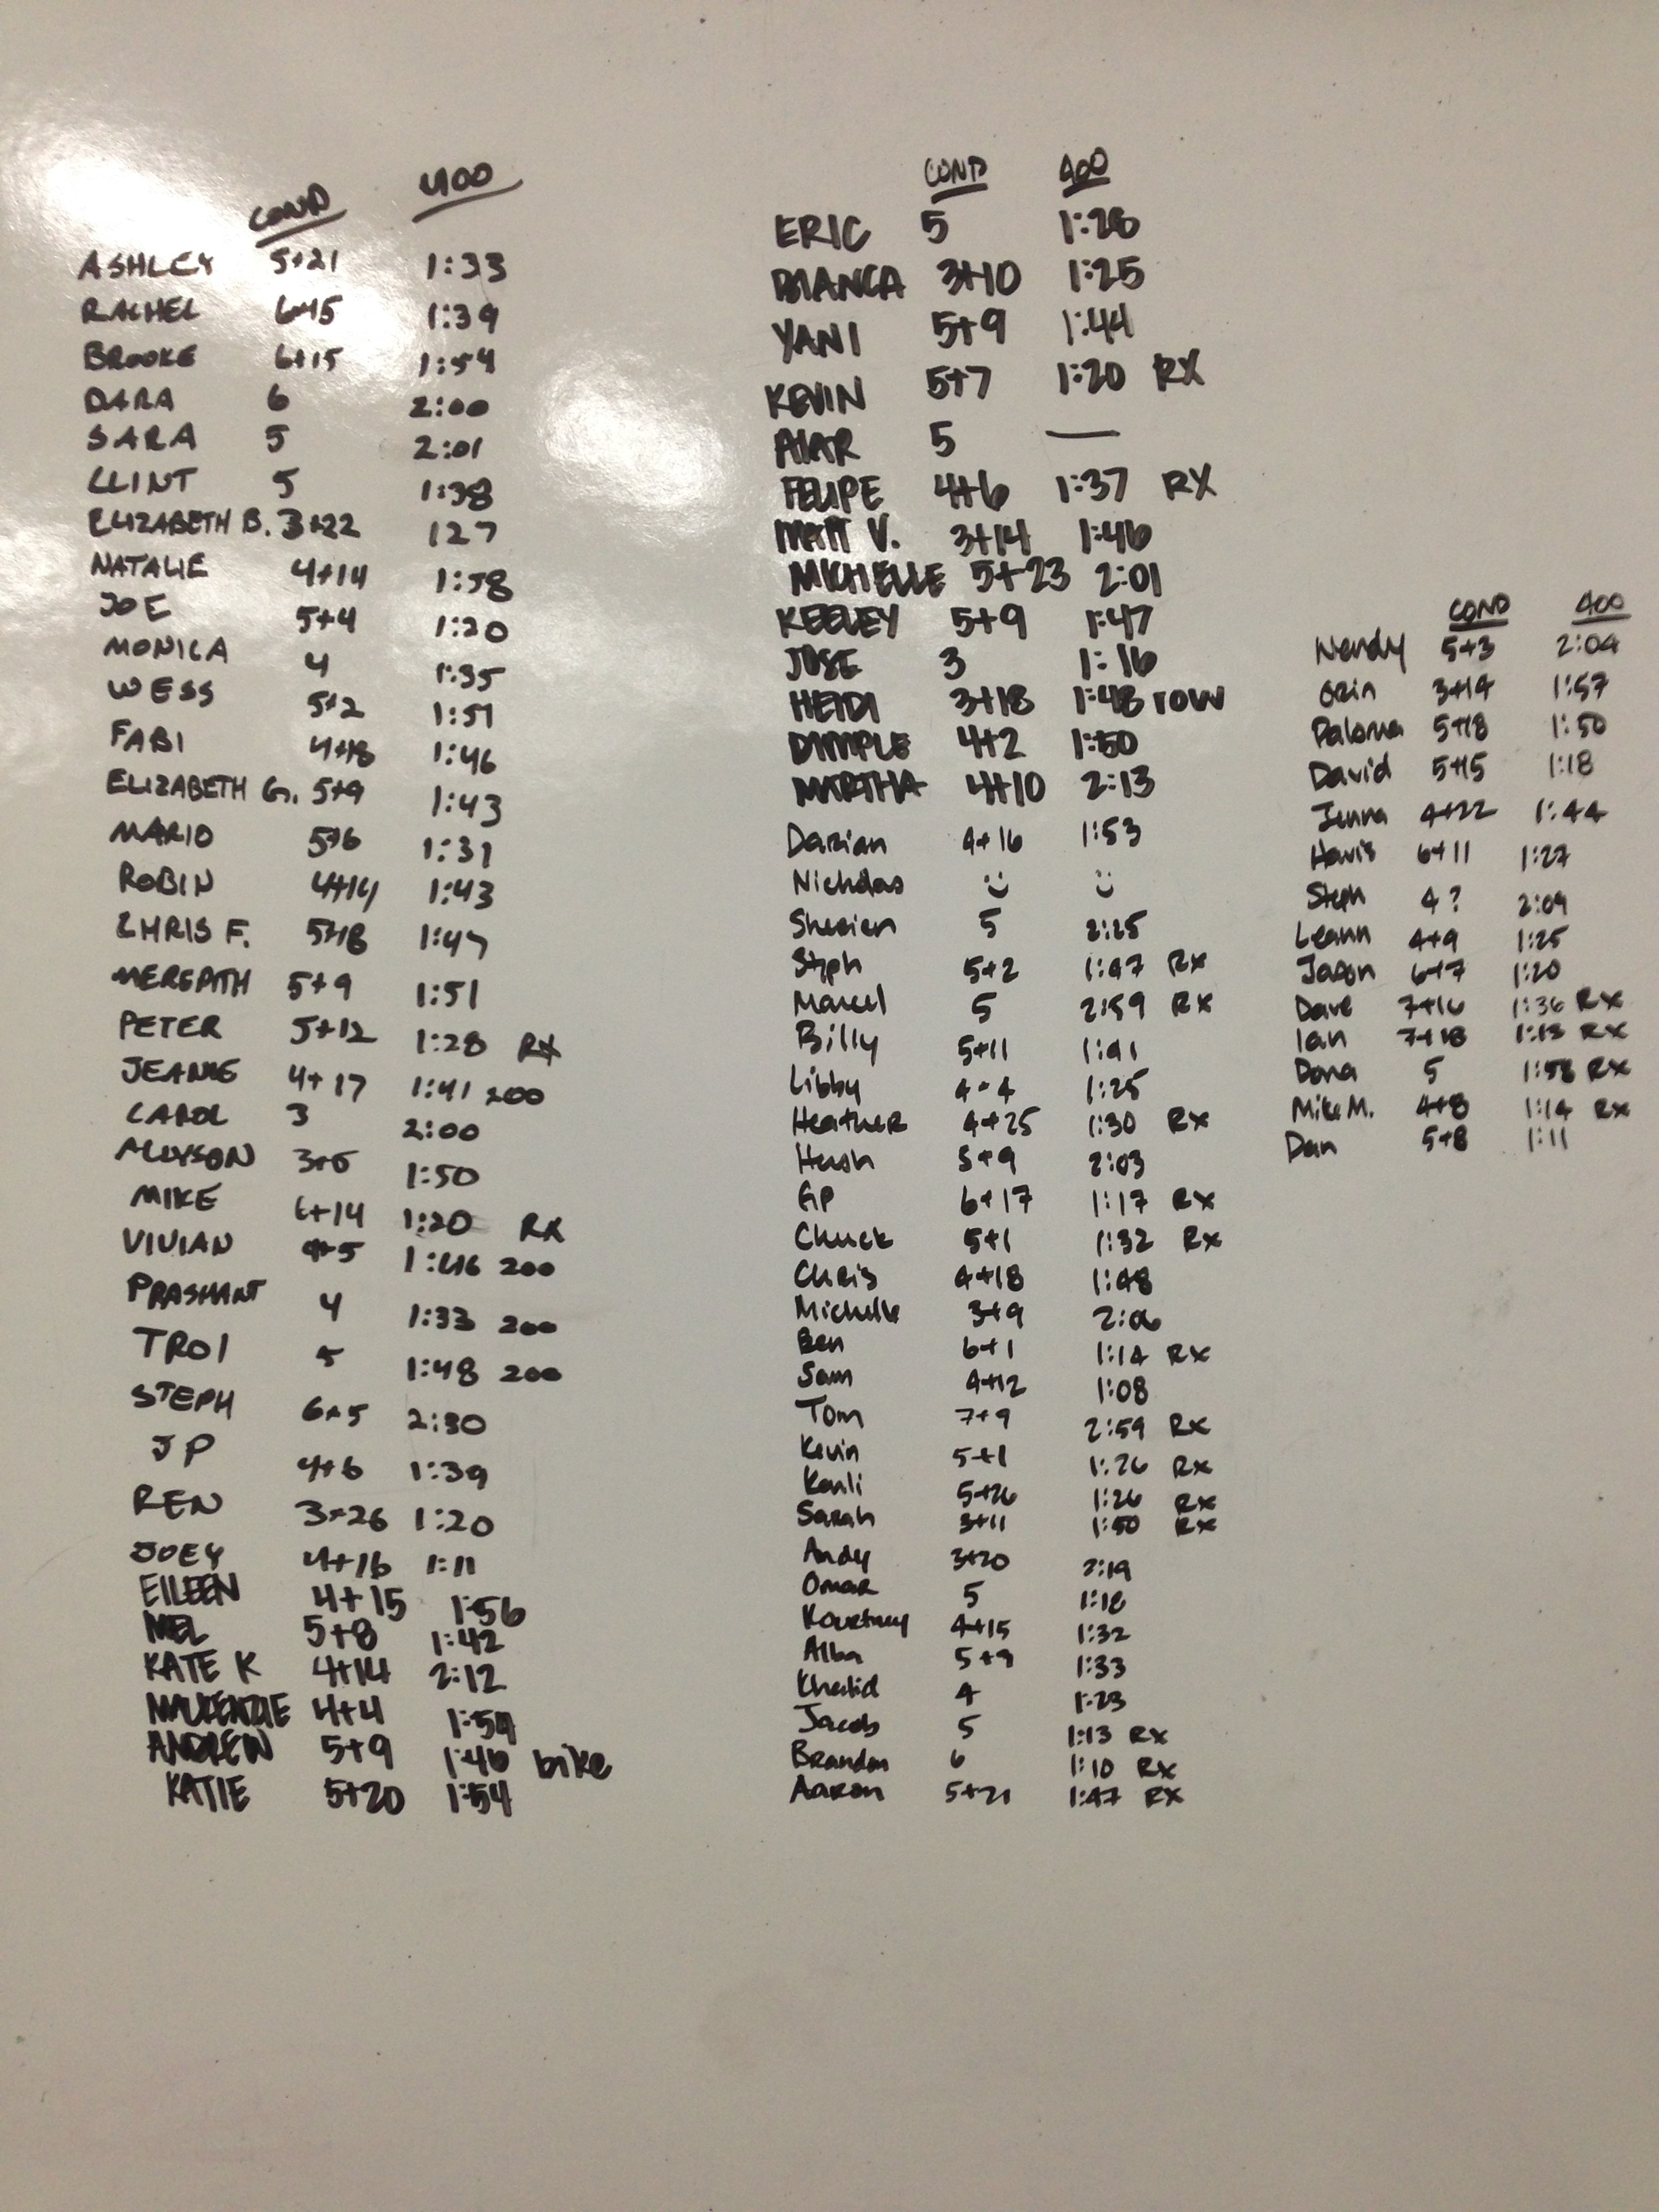 COND 400
ASHLEY 5+21 1:33
RACHEL 6+15 1:39
BROOKE 6+15 1:54
DARA 6 2:00
SARA 5 2:01
CLINT 5 1:38
ELIZABETH B. 3+22 127
NATALIE 4+14 1:58
JOE 5+4 1:20
MONICA 4 1:35
WESS 5+2 1:51
FABI 4+18 1:46
ELIZABETH G. 5+9 1:43
MARIO 5+6 1:31
ROBIN 4+14 1:43
CHRIS F. 5+18 1:47
MEREDITH 5+9 1:51
PETER 5+12 1:28 RX
JEANNE 4+17 1:41 200
CAROL 3 2:00
ALLYSON 3+5 1:50
MIKE 6+14 1:20 RX
VIVIAN 4+5 1:46 200
PRASHANT 4 1:33 200
TROI 5 1:48 200
STEPH 6+5 2:30
JP 4+6 1:39
REN 3+26 1:20
JOEY 4+16 1:11
EILEEN 4+15 1:56
MEL 5+8 1:42
KATE K 4+14 2:12
MACKENZIE 4+4 1:54
ANDREW 5+9 1:46 bike
KATIE 5+20 1:54
COND 400
ERIC 5 1:28
BIANCA 3+10 1:25
YANI 5+9 1:44
KEVIN 5+7 1:20 RX
5 —
FELIPE 4+6 1:37 RX
MATT V. 3+14 1:46
MICHELLE 5+23 2:01
KEELEY 5+9 1:47
JOSE 3 1:16
HEIDI 3+18 1:48 row
DIMPLE 4+2 1:50
MARTHA 4+10 2:13
Darian 4+16 1:53
Nicholas
Sherien 5 2:25
Steph 5+2 1:47 Rx
Marcel 5 2:59 Rx
Billy 5+11 1:41
Libby 4+4 1:25
Heather 4+25 1:30 Rx
Hush 5+9 2:03
GP 6+17 1:17 Rx
Chuck 5+1 1:32 Rx
Chris 4+18 1:48
Michelle 3+9 2:06
Ben 6+1 1:14 Rx
Sam 4+12 1:08
Tom 7+9 2:59 Rx
Kevin 5+1 1:26 Rx
Karli 5+26 1:26 Rx
Sarah 3+11 1:50 Rx
Andy 3+20 2:19
Omar 5 1:18
Kourtney 4+15 1:32
Alba 5+9 1:33
Khalid 4 1:23
Jacob 5 1:13 Rx
Brandon 6 1:10 Rx
Aaron 5+21 1:47 Rx
COND 400
Wendy 5+3 2:04
Orin 3+14 1:57
Paloma 5+18 1:50
David 5+15 1:18
Jenna 4+22 1:44
Havis 6+11 1:27
Steph 4? 2:09
Leann 4+9 1:25
Jason 6+7 1:20
Dave 7+16 1:36 Rx
Ian 7+18 1:13 Rx
Dona 5 1:58 Rx
Mike M. 4+8 1:14 Rx
Dan 5+8 1:11